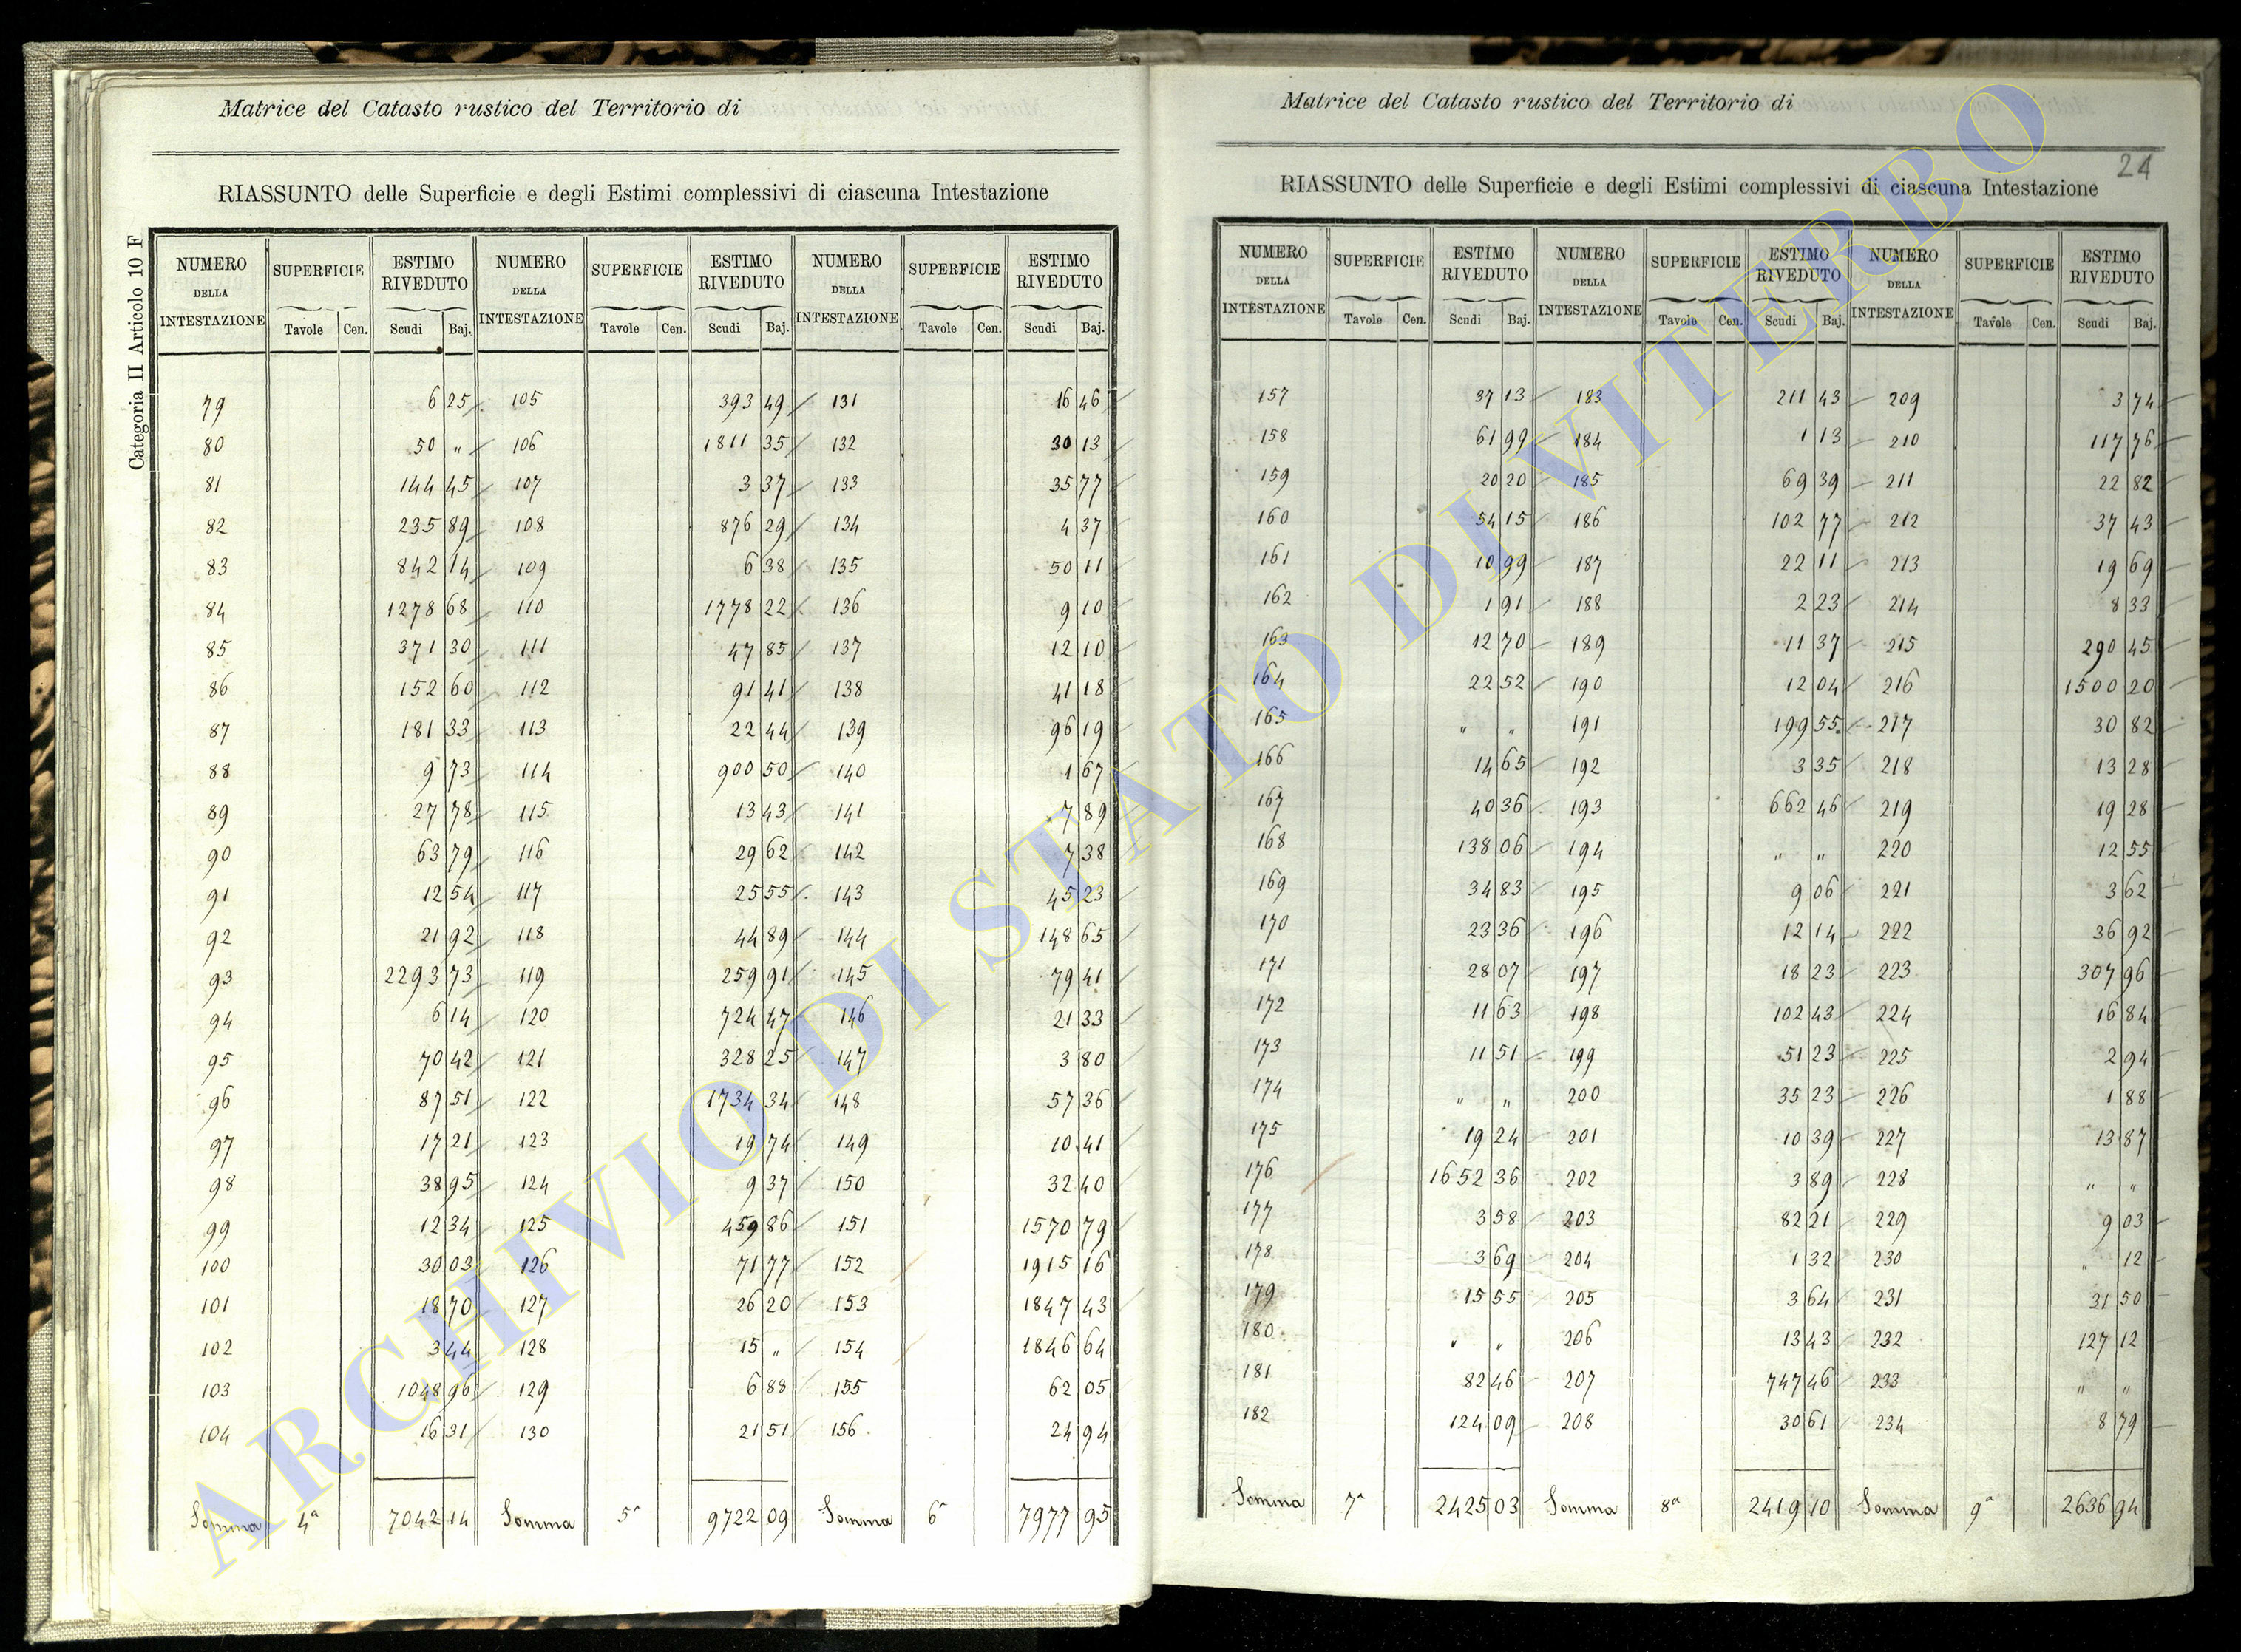 Matrice del Catasto rustico del Territorio di
RIASSUNTO delle Superficie e degli Estimi complessivi di ciascuna Intestazione
Categoria II Articolo 10 F
NUMERO DELLA INTESTAZIONE SUPERFICIE ESTIMO RIVEDUTO NUMERO DELLA INTESTAZIONE SUPERFICIE ESTIMO RIVEDUTO NUMERO DELLA INTESTAZIONE SUPERFICIE ESTIMO RIVEDUTO
Tavole Cen. Scudi Baj. Tavole Cen. Scudi Baj. Tavole Cen. Scudi Baj.
79 6 25 105 393 49 131 16 46
80 50 " 106 1811 35 132 30 13
81 144 45 107 3 37 133 35 77
82 235 89 108 876 29 134 4 37
83 842 14 109 6 38 135 50 11
84 1278 68 110 1778 22 136 9 10
85 371 30 111 47 85 137 12 10
86 152 60 112 91 41 138 41 18
87 181 33 113 22 44 139 96 19
88 9 73 114 900 50 140 1 67
89 27 78 115 13 43 141 7 89
90 63 79 116 29 62 142 7 38
91 12 54 117 25 55 143 45 23
92 21 92 118 44 89 144 148 65
93 2293 73 119 259 91 145 79 41
94 6 14 120 724 47 146 21 33
95 70 42 121 328 25 147 3 80
96 87 51 122 1734 34 148 57 36
97 17 21 123 19 74 149 10 41
98 38 95 124 9 37 150 32 40
99 12 34 125 459 86 151 1570 79
100 30 03 126 71 77 152 1915 16
101 18 70 127 26 20 153 1847 43
102 3 44 128 15 " 154 1846 64
103 1048 96 129 6 88 155 62 05
104 16 31 130 21 51 156 24 94
Somma 4ª 7042 14 Somma 5ª 9722 09 Somma 6ª 7977 95
Matrice del Catasto rustico del Territorio di
24
RIASSUNTO delle Superficie e degli Estimi complessivi di ciascuna Intestazione
NUMERO DELLA INTESTAZIONE SUPERFICIE ESTIMO RIVEDUTO NUMERO DELLA INTESTAZIONE SUPERFICIE ESTIMO RIVEDUTO NUMERO DELLA INTESTAZIONE SUPERFICIE ESTIMO RIVEDUTO
Tavole Cen. Scudi Baj. Tavole Cen. Scudi Baj. Tavole Cen. Scudi Baj.
157 37 13 183 211 43 209 3 74
158 61 99 184 1 13 210 117 76
159 20 20 185 69 39 211 22 82
160 54 15 186 102 77 212 37 43
161 10 99 187 22 11 213 19 69
162 1 91 188 2 23 214 8 33
163 12 70 189 11 37 215 290 45
164 22 52 190 12 04 216 1500 20
165 " " 191 199 55 217 30 82
166 14 65 192 3 35 218 13 28
167 40 36 193 662 46 219 19 28
168 138 06 194 " " 220 12 55
169 34 83 195 9 06 221 3 62
170 23 36 196 12 14 222 36 92
171 28 07 197 18 23 223 307 96
172 11 63 198 102 43 224 16 84
173 11 51 199 51 23 225 2 94
174 " " 200 35 23 226 1 88
175 19 24 201 10 39 227 13 87
176 1652 36 202 3 89 228 " "
177 3 58 203 82 21 229 9 03
178 3 69 204 1 32 230 " 12
179 15 55 205 3 64 231 31 50
180 " " 206 13 43 232 127 12
181 82 46 207 747 46 233 " "
182 124 09 208 30 61 234 8 79
Somma 7ª 2425 03 Somma 8ª 2419 10 Somma 9ª 2636 94
ARCHIVIO DI STATO DI VITERBO